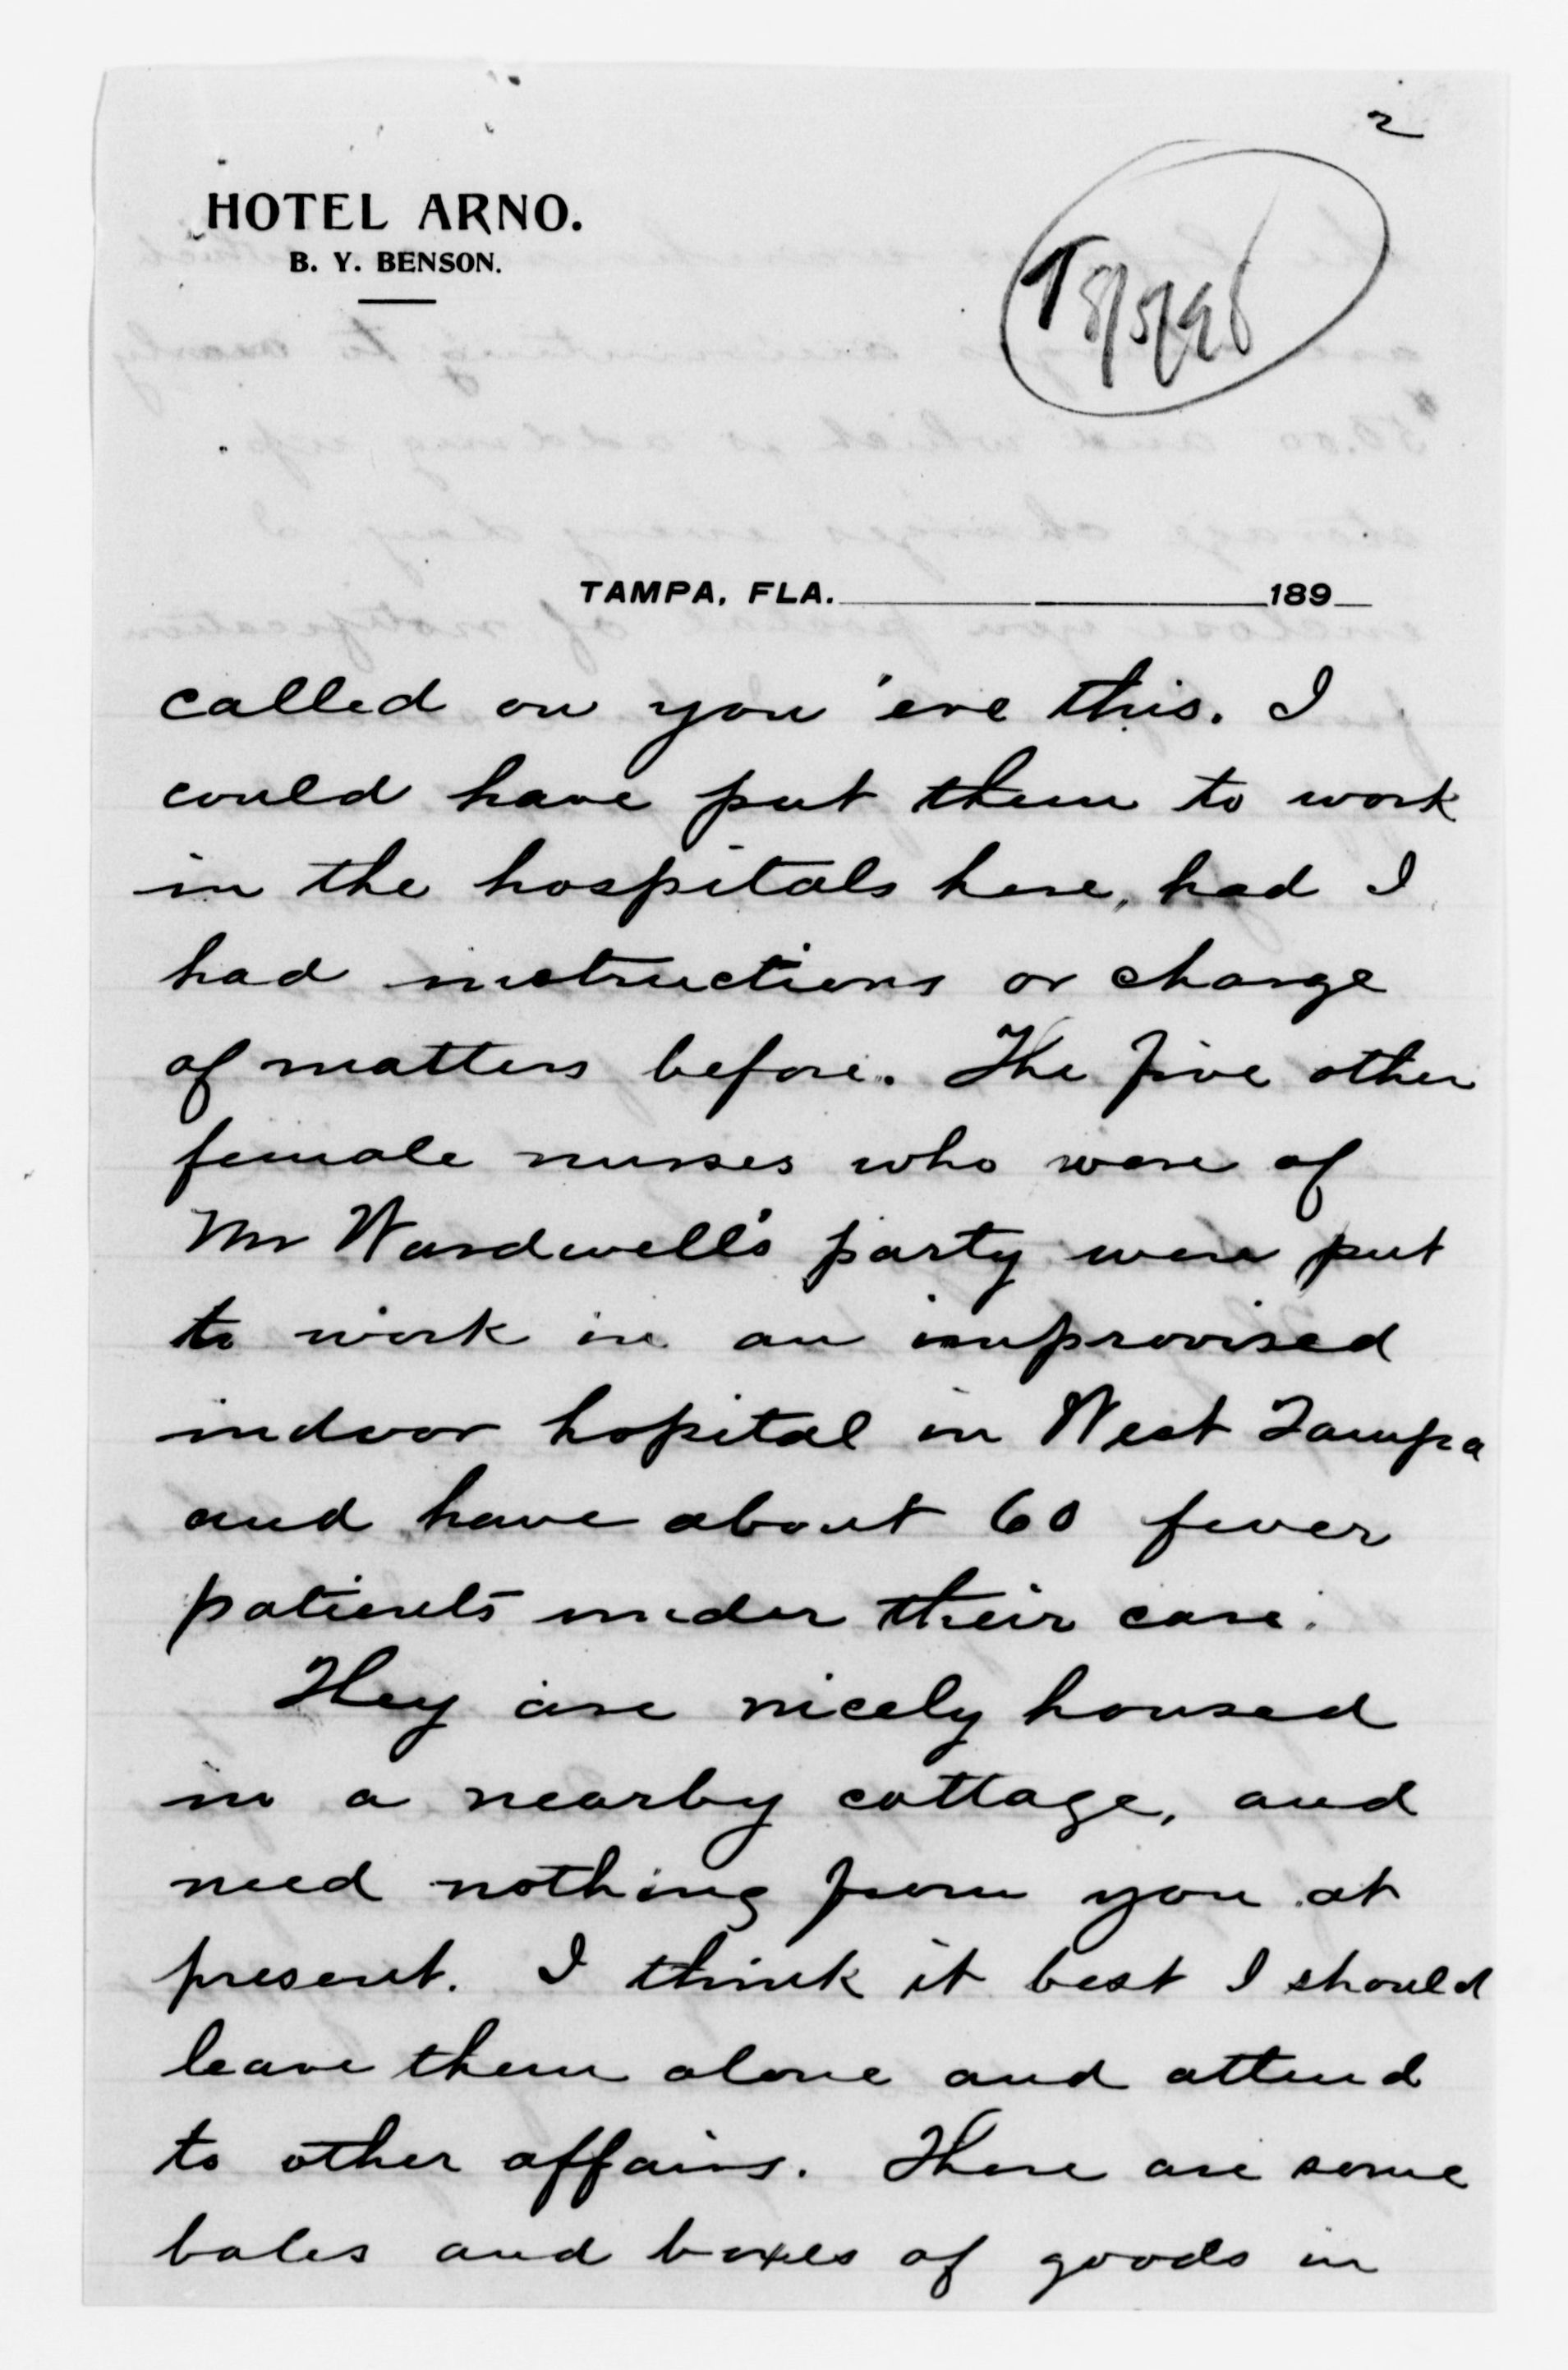 2
HOTEL ARNO.
B. Y. BENSON.
T 8/5/98
TAMPA, FLA. 189
called on you 'ere this. I
could have put them to work
in the hospitals here, had I
had instructions or charge
of matters before. The five other
female nurses who were of
Mr Wardwell's party were put
to work in an improvised
indoor hopital in West Tampa
and have about 60 fever
patients under their care.
They are nicely housed
in a nearby cottage, and
need nothing from you at
present. I think it best I should
leave them alone and attend
to other affairs. There are some
bales and boxes of goods in